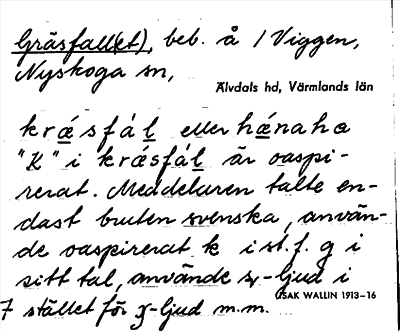 Gräsfall(et), beb. å / Viggen,
Nyskoga sn,
Älvdals hd, Värmlands län
kr ǽ s f á l eller h ǽ n a h a
"K" i kr ǽ s f á l är oaspi-
rerat. Meddelaren talte en-
dast bruten svenska, använ-
de oaspirerat k i st. f. g i
sitt tal, använde s-ljud i
ISAK WALLIN 1913-16
stället för ʒ-ljud m.m.